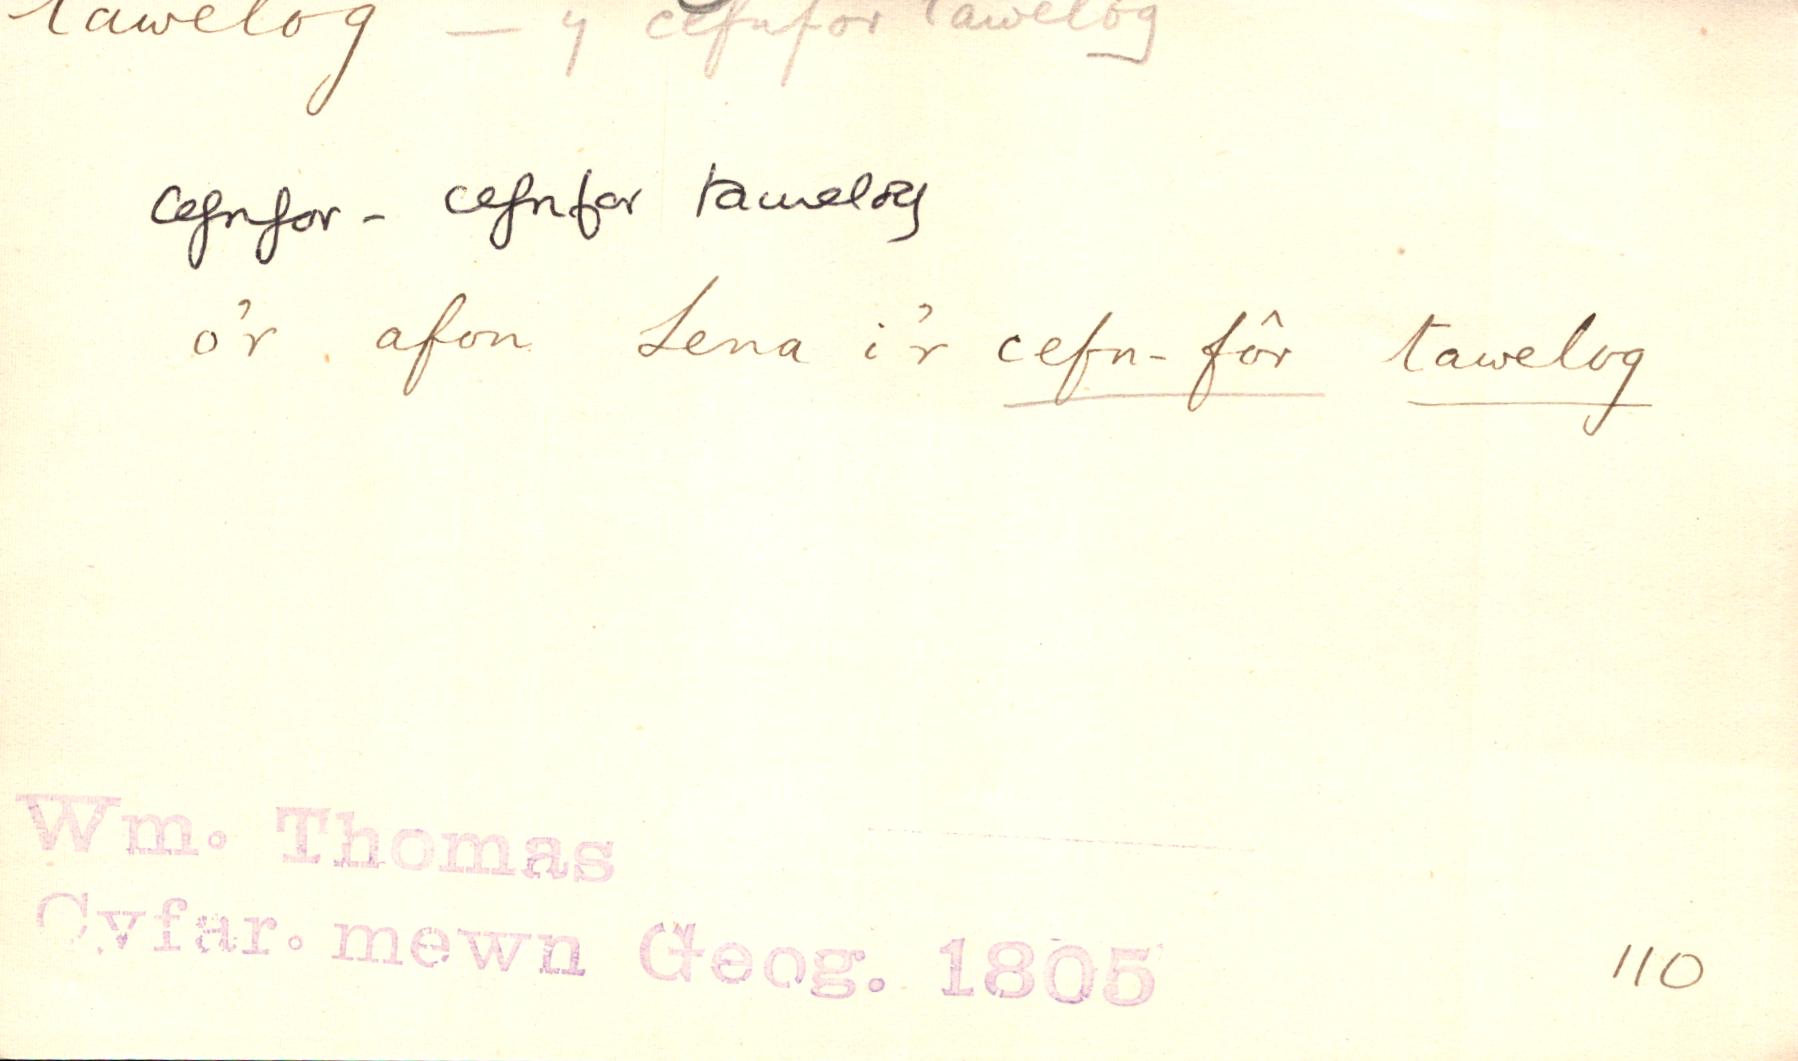 tawelog — y cefnfor tawelog
cefnfor - cefnfor tawelog
o'r afon Lena i'r cefn-fôr tawelog
Wm. Thomas
Cyfar. mewn Geog. 1805
110